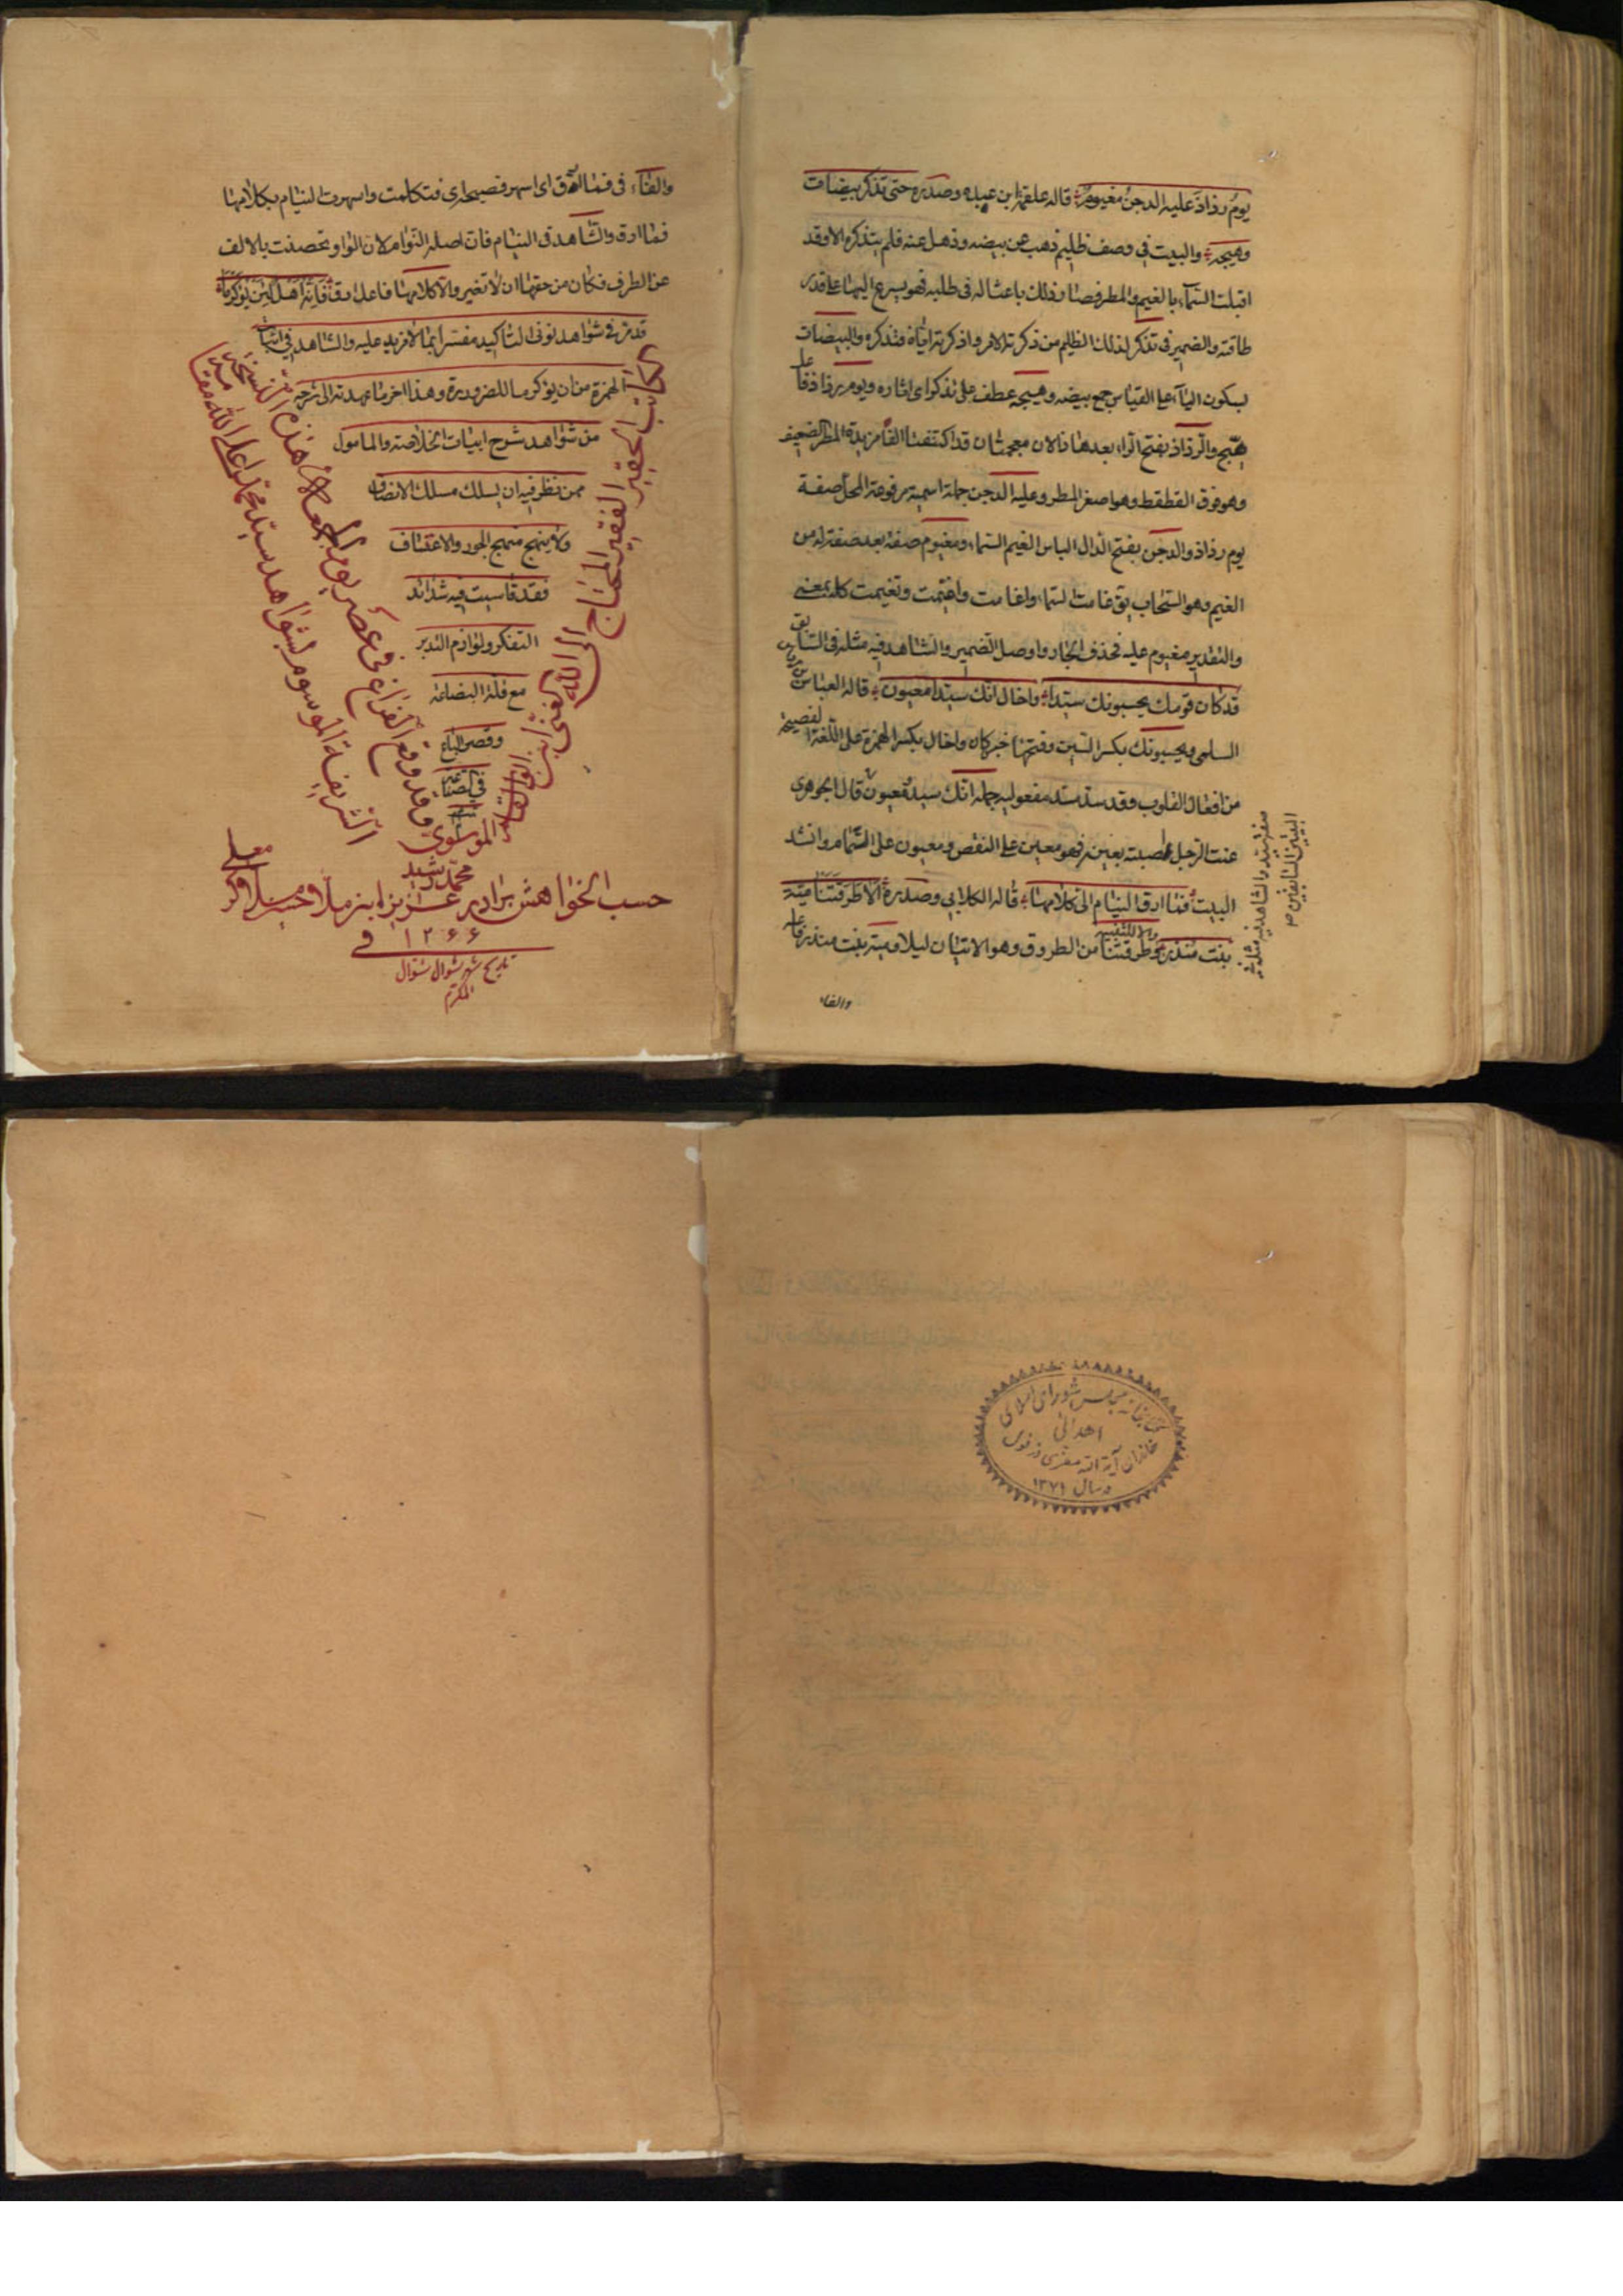 يومُ رذاذٍ عليه الدجنُ مغيومٌ قاله علقمة ابن عبده وصدره حتى تذكر بيضات
وهيجه والبيت في وصف ظليم ذهب عن بيضه وذهل عنه فلم يتذكره الا وقد
اقبلت السماء بالغيم والمطر فصار ذلك باعثا له في طلبه فهو يسرع اليها على قدر
طاقته والضمير في تذكر لذلك الظليم من ذكرته الامر واذكرته اياه فتذكره والبيضات
بسكون الياء على القياس جمع بيضه وهيجه عطف على تذكر اى اثاره ويوم رذاذ فاعل
هيج والرذاذ بفتح الراء بعدها ذالان معجمتان قد اكتنفتا الفا مزيدة المطر الضعيف
وهو فوق القطقط وهو اصغر المطر وعليه الدجن جملة اسمية مرفوعة المحل صفة
يوم رذاذ والدجن بفتح الدال الباس الغيم السماء ومغيوم صفة بعد صفة له من
الغيم وهو السحاب يق غامت السماء واغامت واغيمت وتغيمت كله بمعنى
والتقدير مغيوم عليه فحذف الجار واوصل الضمير والشاهد فيه مثله في السابق
قد كان قومك يحسبونك سيدا واخال انك سيد معيون قاله العباس بن مرداس
السلمى ويحسبونك بكسر السين وفتحها خبر كان واخال بكسر الهمزة على اللغة الفصيحة
من افعال القلوب وقد سد مسد مفعوليه جملة انك سيد معيون قال الجوهرى
عنت الرجل اصبته بعين فهو معين على النقص ومعيون على التمام وانشد
البيت فما ارق النيام الى كلامها قاله الكلابي وصدره الا طرقتنا مية
بنت منذر والا للتنبيه وطرقتنا من الطروق وهو الاتيان ليلا ومية بنت منذر فاعله
والفاء
والفاء في فما ارق اى اسهر فصيحة اى فتكلمت واسهرت النيام بكلامها
فما ارق والشاهد في النيام فان اصله النوام لان الواو تحصنت بالالف
عن الطرف فكان من حقها ان لا تغير والا كلامها فاعل ارق فانه اهل لان يؤكرما
قد مر في شواهد نونى التاكيد مفسرا بما لا مزيد عليه والشاهد في اثبات
الهمزة من ان يؤكرما للضرورة وهذا اخر ما عهدته الى شرحه
من شواهد شرح ابيات الخلاصة والمامول
ممن نظر فيه ان يسلك مسلك الانصاف
ولا ينهج منهج الجور والاعتساف
فقد قاسيت فيه شدائد
التفكر ولوازم التدبر
مع قلة البضاعة
وقصر الباع
في الصناعة
كاتب الحقير الفقير المحتاج الى الله الغنى ابن
الموسوى
محمد رشيد
قد وقع الفراغ في عصر يوم الجمعة من هذه النسخة
الشريفة الموسوم بشواهد سيد محمد على
حسب الخواهش برادر عزيز ابنر ملا
في ١٢۶۶
تاريخ شهر شوال شوال
المكرم
كتابخانه مجلس شوراى اسلامى
اهدائى
خاندان آية الله
در سال ١٣٧١